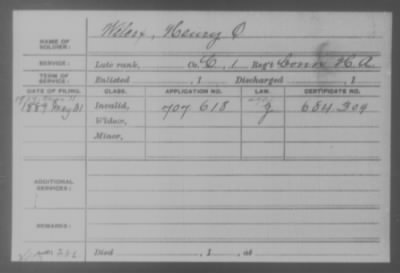 NAME OF SOLDIER: Wilcox, Henry O
SERVICE: Late rank, Co. C, 1 Reg't Conn H.A.
TERM OF SERVICE: Enlisted , 1 Discharged , 1
DATE OF FILING. CLASS. APPLICATION NO. LAW. CERTIFICATE NO.
1889 May 31 Invalid, 707 618 g 684 309
Widow,
Minor,
ADDITIONAL SERVICES:
REMARKS:
Died , 1 , at